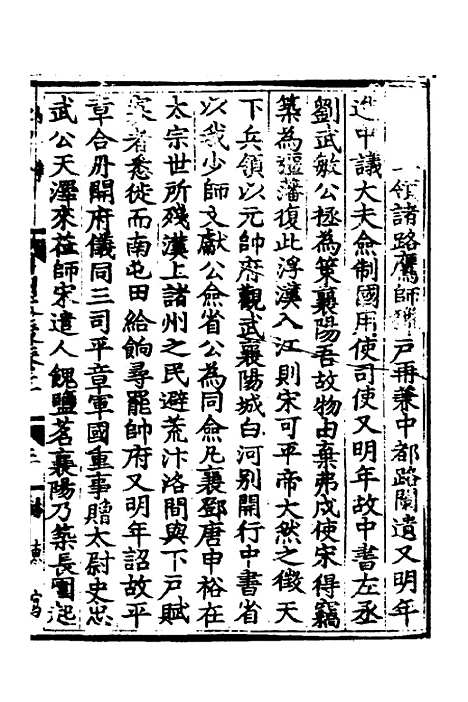 領諸路鷹師戶再兼中都路闌遺又明年
進中議大夫僉制國用使司使又明年故中書左丞
劉武敏公拯為策襄陽吾故物由棄弗戍使宋得竊
築為彊藩復此浮漢入江則宋可平帝大然之徵天
下兵領以元帥府觀武襄陽城白河別開行中書省
以我少師文獻公僉省公為同僉凡襄鄧唐申裕在
太宗世所殘漢上諸州之民避荒汴洛間與下戶賦
寡者悉徙而南屯田給餉尋罷帥府又明年詔故平
章合丹開府儀同三司平章軍國重事贈太尉史忠
武公天澤來莅師宋遣人餽鹽茗襄陽乃築長圍起